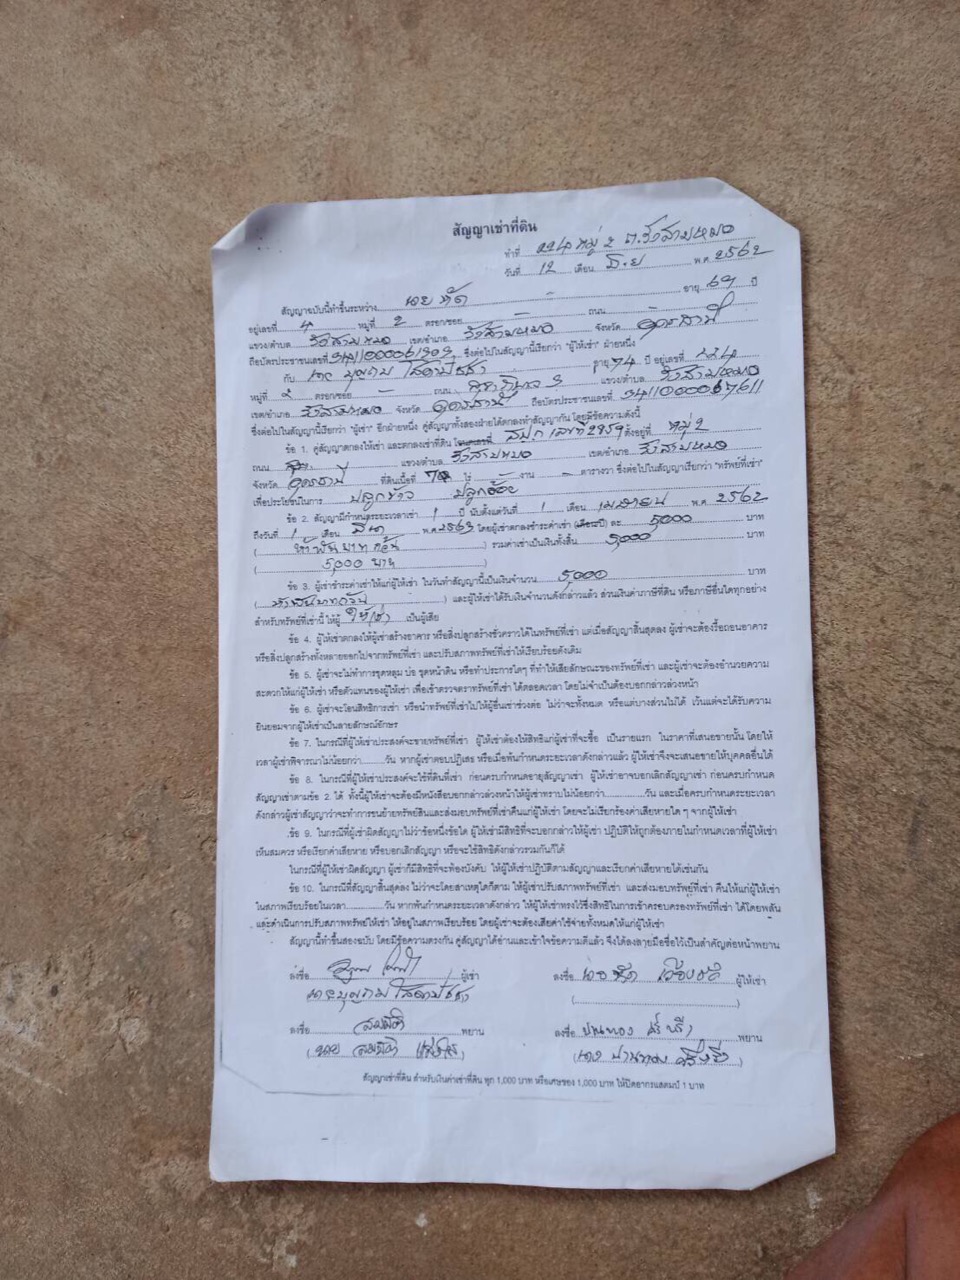 สัญญาเช่าที่ดิน
ทำที่ 224 หมู่ 2 ต.วังสามหมอ
วันที่ 12 เดือน มิ.ย พ.ศ. 2562
สัญญาฉบับนี้ทำขึ้นระหว่าง นาย อายุ 67 ปี
อยู่เลขที่ 4 หมู่ที่ 2 ตรอก/ซอย - ถนน
แขวง/ตำบล วังสามหมอ เขต/อำเภอ วังสามหมอ จังหวัด อุดรธานี
ถือบัตรประชาชนเลขที่ ซึ่งต่อไปในสัญญานี้เรียกว่า "ผู้ให้เช่า" ฝ่ายหนึ่ง
กับ นาย บุญถม อายุ 74 ปี อยู่เลขที่ 224
หมู่ที่ ตรอก/ซอย ถนน แขวง/ตำบล วังสามหมอ
เขต/อำเภอ วังสามหมอ จังหวัด อุดรธานี ถือบัตรประชาชนเลขที่
ซึ่งต่อไปในสัญญานี้เรียกว่า "ผู้เช่า" อีกฝ่ายหนึ่ง คู่สัญญาทั้งสองฝ่ายได้ตกลงทำสัญญากัน โดยมีข้อความดังนี้
ข้อ 1. คู่สัญญาตกลงให้เช่า และตกลงเช่าที่ดิน สปก เลขที่ 2959 ตั้งอยู่ที่ หมู่ 2
ถนน แขวง/ตำบล วังสามหมอ เขต/อำเภอ วังสามหมอ
จังหวัด อุดรธานี ที่ดินเนื้อที่ ไร่ - งาน - ตารางวา ซึ่งต่อไปในสัญญาเรียกว่า "ทรัพย์ที่เช่า"
เพื่อประโยชน์ในการ ปลูกข้าว ปลูกอ้อย
ข้อ 2. สัญญามีกำหนดระยะเวลาเช่า 1 ปี นับตั้งแต่วันที่ 1 เดือน เมษายน พ.ศ. 2562
ถึงวันที่ 1 เดือน มีนา พ.ศ. 2563 โดยผู้เช่าตกลงชำระค่าเช่า (เดือน/ปี) ละ 5,000 บาท
(ห้าพันบาทถ้วน) รวมค่าเช่าเป็นเงินทั้งสิ้น 5,000 บาท
(5,000 บาท)
ข้อ 3. ผู้เช่าชำระค่าเช่าให้แก่ผู้ให้เช่า ในวันทำสัญญานี้เป็นเงินจำนวน 5,000 บาท
(ห้าพันบาทถ้วน) และผู้ให้เช่าได้รับเงินจำนวนดังกล่าวแล้ว ส่วนเงินค่าภาษีที่ดิน หรือภาษีอื่นใดทุกอย่าง
สำหรับทรัพย์ที่เช่านี้ ให้ผู้ ให้เช่า เป็นผู้เสีย
ข้อ 4. ผู้ให้เช่าตกลงให้ผู้เช่าสร้างอาคาร หรือสิ่งปลูกสร้างชั่วคราวได้ในทรัพย์ที่เช่า แต่เมื่อสัญญาสิ้นสุดลง ผู้เช่าจะต้องรื้อถอนอาคาร
หรือสิ่งปลูกสร้างทั้งหลายออกไปจากทรัพย์ที่เช่า และปรับสภาพทรัพย์ที่เช่าให้เรียบร้อยดังเดิม
ข้อ 5. ผู้เช่าจะไม่ทำการขุดหลุม บ่อ ขุดหน้าดิน หรือทำประการใดๆ ที่ทำให้เสียลักษณะของทรัพย์ที่เช่า และผู้เช่าจะต้องอำนวยความ
สะดวกให้แก่ผู้ให้เช่า หรือตัวแทนของผู้ให้เช่า เพื่อเข้าตรวจตราทรัพย์ที่เช่า ได้ตลอดเวลา โดยไม่จำเป็นต้องบอกกล่าวล่วงหน้า
ข้อ 6. ผู้เช่าจะโอนสิทธิการเช่า หรือนำทรัพย์ที่เช่าไปให้ผู้อื่นเช่าช่วงต่อ ไม่ว่าจะทั้งหมด หรือแต่บางส่วนไม่ได้ เว้นแต่จะได้รับความ
ยินยอมจากผู้ให้เช่าเป็นลายลักษณ์อักษร
ข้อ 7. ในกรณีที่ผู้ให้เช่าประสงค์จะขายทรัพย์ที่เช่า ผู้ให้เช่าต้องให้สิทธิแก่ผู้เช่าที่จะซื้อ เป็นรายแรก ในราคาที่เสนอขายนั้น โดยให้
เวลาผู้เช่าพิจารณาไม่น้อยกว่า..........วัน หากผู้เช่าตอบปฏิเสธ หรือเมื่อพ้นกำหนดระยะเวลาดังกล่าวแล้ว ผู้ให้เช่าจึงจะเสนอขายให้บุคคลอื่นได้
ข้อ 8. ในกรณีที่ผู้ให้เช่าประสงค์จะใช้ที่ดินที่เช่า ก่อนครบกำหนดอายุสัญญาเช่า ผู้ให้เช่าอาจบอกเลิกสัญญาเช่า ก่อนครบกำหนด
สัญญาเช่าตามข้อ 2. ได้ ทั้งนี้ผู้ให้เช่าจะต้องมีหนังสือบอกกล่าวล่วงหน้าให้ผู้เช่าทราบไม่น้อยกว่า...............วัน และเมื่อครบกำหนดระยะเวลา
ดังกล่าวผู้เช่าสัญญาว่าจะทำการขนย้ายทรัพย์สินและส่งมอบทรัพย์ที่เช่าคืนให้แก่ผู้ให้เช่า โดยจะไม่เรียกร้องค่าเสียหายใด ๆ จากผู้ให้เช่า
ข้อ 9. ในกรณีที่ผู้เช่าผิดสัญญาไม่ว่าข้อหนึ่งข้อใด ผู้ให้เช่ามีสิทธิที่จะบอกกล่าวให้ผู้เช่า ปฏิบัติให้ถูกต้องภายในกำหนดเวลาที่ผู้ให้เช่า
เห็นสมควร หรือเรียกค่าเสียหาย หรือบอกเลิกสัญญา หรือจะใช้สิทธิดังกล่าวรวมกันก็ได้
ในกรณีที่ผู้ให้เช่าผิดสัญญา ผู้เช่าก็มีสิทธิที่จะฟ้องบังคับ ให้ผู้ให้เช่าปฏิบัติตามสัญญาและเรียกค่าเสียหายได้เช่นกัน
ข้อ 10. ในกรณีที่สัญญาสิ้นสุดลง ไม่ว่าจะโดยสาเหตุใดก็ตาม ให้ผู้เช่าปรับสภาพทรัพย์ที่เช่า และส่งมอบทรัพย์ที่เช่า คืนให้แก่ผู้ให้เช่า
ในสภาพเรียบร้อยในเวลา..........วัน หากพ้นกำหนดระยะเวลาดังกล่าว ให้ผู้ให้เช่าทรงไว้ซึ่งสิทธิในการเข้าครอบครองทรัพย์ที่เช่า ได้โดยพลัน
และดำเนินการปรับสภาพทรัพย์ให้เช่า ให้อยู่ในสภาพเรียบร้อย โดยผู้เช่าจะต้องเสียค่าใช้จ่ายทั้งหมดให้แก่ผู้ให้เช่า
สัญญานี้ทำขึ้นสองฉบับ โดยมีข้อความตรงกัน คู่สัญญาได้อ่านและเข้าใจข้อความดีแล้ว จึงได้ลงลายมือชื่อไว้เป็นสำคัญต่อหน้าพยาน
ลงชื่อ ผู้เช่า ลงชื่อ ผู้ให้เช่า
นายบุญถม
ลงชื่อ สมมิติ พยาน ลงชื่อ ปานทอง พยาน
(นาย สมมิติ ) (นาง ปานทอง )
สัญญาเช่าที่ดิน สำหรับเงินค่าเช่าที่ดิน ทุก 1,000 บาท หรือเศษของ 1,000 บาท ให้ปิดอากรแสตมป์ 1 บาท